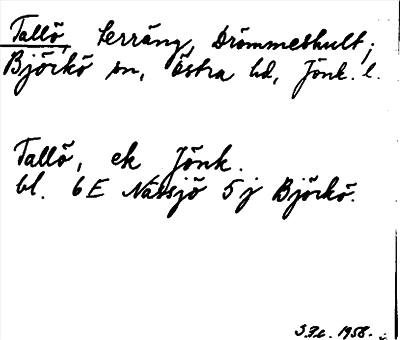 Tallö, terräng, Drömmeshult;
Björkö sn, Östra hd, Jönk. l.
Tallö, ek Jönk.
bl. 6E Nässjö 5j Björkö.
1958.